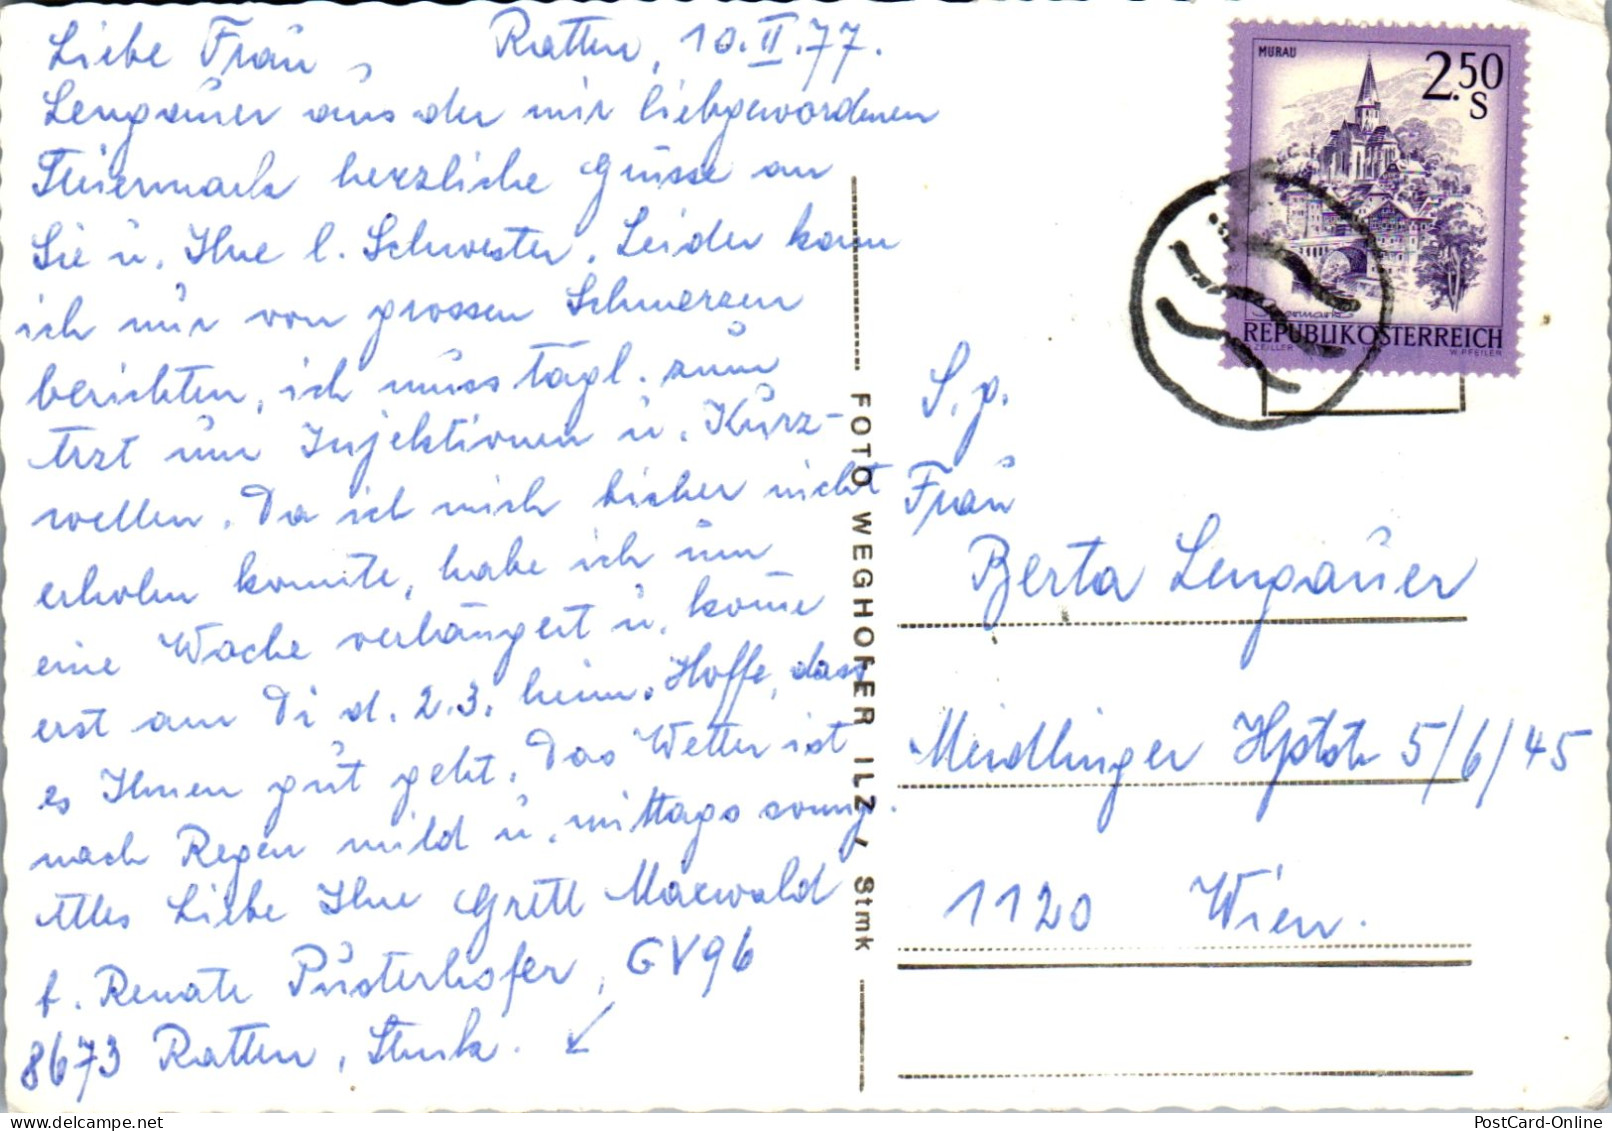 Liebe Frau, Ratten, 10.II.77.
Lengauer aus der mir liebgewordenen
Steiermark herzliche Grüsse an
Sie u. Ihre l. Schwester. Leider kann
ich nur von grossen Schmerzen
berichten, ich muss tägl. zum
Arzt um Injektionen u. Kurz-
wellen. Da ich mich bisher nicht
erholen konnte, habe ich um
eine Woche verlängert u. kome
erst am Di d. 2.3. heim. Hoffe, dass
es Ihnen gut geht. Das Wetter ist
nach Regen mild u. mittags sonnig.
Alles Liebe Ihre Gretl Maxwald
b. Renate Pusterhofer, GV96
8673 Ratten, Stmk.
FOTO WEGHOFER ILZ / Stmk
MURAU
2.50
S
Steiermark
REPUBLIK ÖSTERREICH
ZEILLER W. PFEILER
S. g.
Frau
Berta Lengauer
Meidlinger Hptstr 5/6/45
1120 Wien.
PostCard-Online